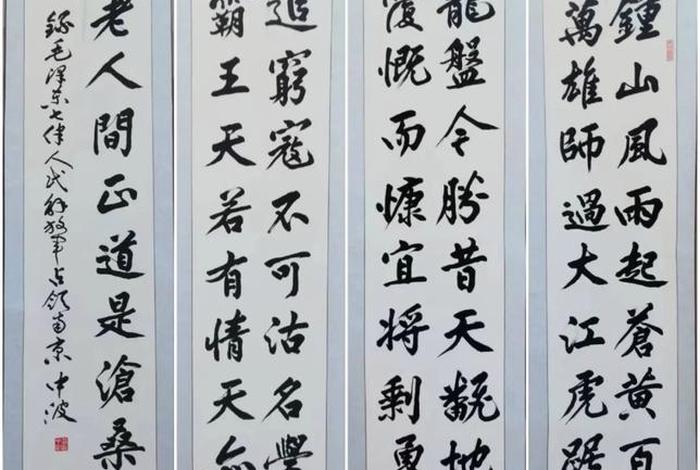 鍾山風雨起蒼黃百
萬雄師過大江虎踞
龍盤今勝昔天翻地
覆慨而慷宜將剩勇
追窮寇不可沽名學
霸王天若有情天亦
老人間正道是滄桑
錄毛澤东七律人民解放军占领南京 中波